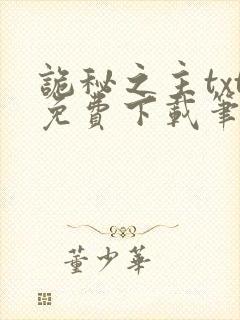 詭秘之主txt
免費下載筆
董少華